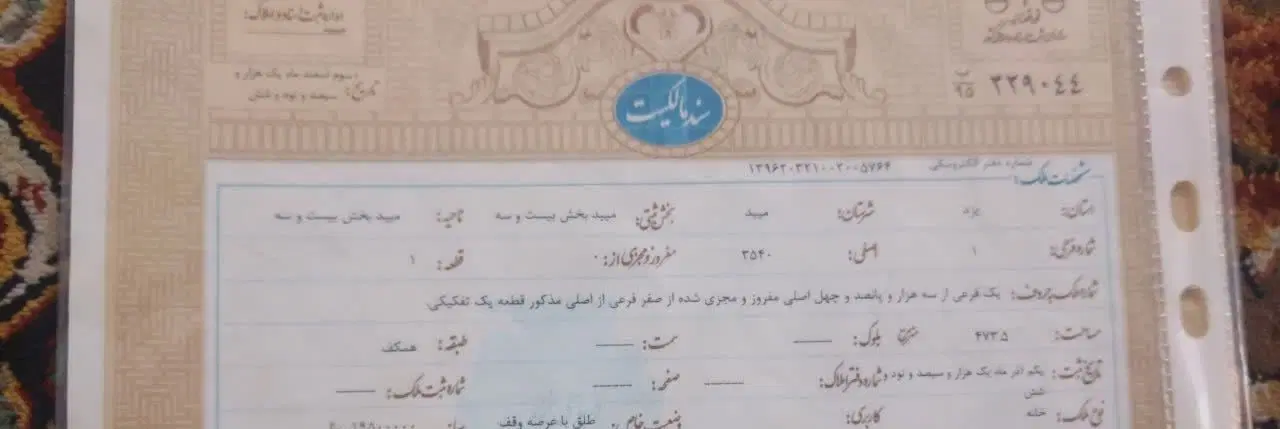 اداره ثبت اسناد و املاک:
میبد
تاریخ: سوم اسفند ماه یک هزار و
سیصد و نود و شش
۳۳۹۰۴۴ ب ۹۵
سند مالکیت
شماره دفتر الکترونیکی ۱۳۹۶۲۰۳۲۱۰۰۲۰۰۵۷۶۴
مشخصات ملک:
استان: یزد شهرستان: میبد بخش ثبتی: میبد بخش بیست و سه ناحیه: میبد بخش بیست و سه
شماره فرعی: ۱ اصلی: ۳۵۴۰ مفروز و مجزی از: ۰ قطعه: ۱
شماره ملک بحروف: یک فرعی از سه هزار و پانصد و چهل اصلی مفروز و مجزی شده از صفر فرعی از اصلی مذکور قطعه یک تفکیکی.
مساحت: ۴۷۳.۵ مترمربع بلوک: —— سمت: —— طبقه: همکف
تاریخ ثبت: یکم آذر ماه یک هزار و سیصد و نود و شش شماره دفتر املاک: —— صفحه: —— شماره ثبت ملک: ——
نوع ملک: خانه کاربری: وضعیت خاص: طلق با عرصه وقف